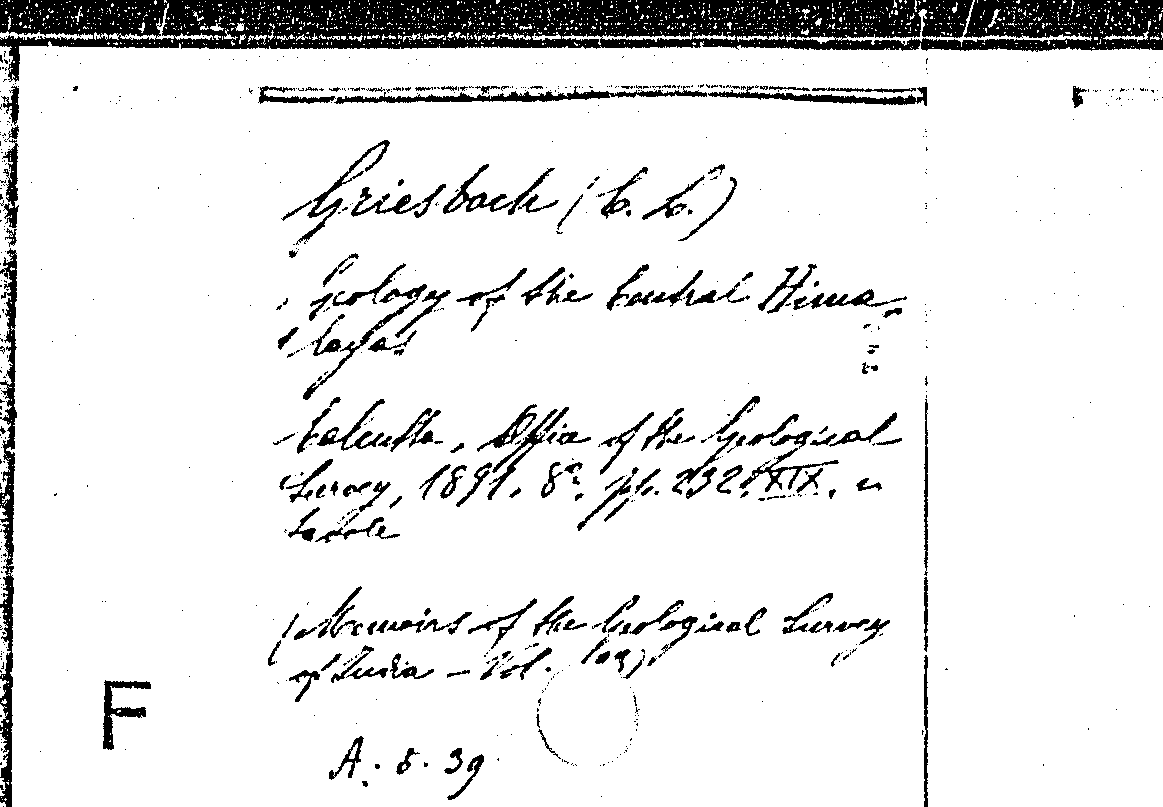 Griesbach (C. L.)
Geology of the Central Hima-
layas
Calcutta, Office of the Geological
Survey, 1891. 8º. pp. 232. XIX. n
tavole
(Memoirs of the Geological Survey
of India - Vol.
A. 5. 39
F